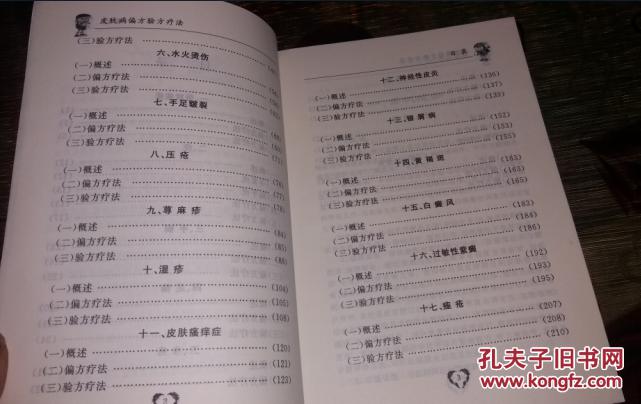 皮肤病偏方验方疗法
(三)验方疗法
六、水火烫伤
(一)概述
(二)偏方疗法
(三)验方疗法
七、手足皲裂
(一)概述
(二)偏方疗法
(三)验方疗法
八、压疮
(一)概述
(二)偏方疗法
(三)验方疗法
九、荨麻疹
(一)概述 (84)
(二)偏方疗法
(三)验方疗法 (88)
十、湿疹
(一)概述 (104)
(二)偏方疗法 (105)
(三)验方疗法 (108)
十一、皮肤瘙痒症
(一)概述 (120)
(二)偏方疗法 (121)
(三)验方疗法 (123)
2
目录
十二、神经性皮炎
(一)概述 (136)
(二)偏方疗法 (137)
(三)验方疗法 (139)
十三、银屑病
(一)概述 (152)
(二)偏方疗法 (153)
(三)验方疗法 (155)
十四、黄褐斑
(一)概述 (163)
(二)偏方疗法 (163)
(三)验方疗法 (165)
十五、白癜风
(一)概述 (183)
(二)偏方疗法 (184)
(三)验方疗法 (186)
十六、过敏性紫癜
(一)概述 (192)
(二)偏方疗法 (193)
(三)验方疗法 (195)
十七、痤疮
(一)概述 (207)
(二)偏方疗法 (208)
(三)验方疗法 (210)
3
孔夫子旧书网
www.kongfz.com